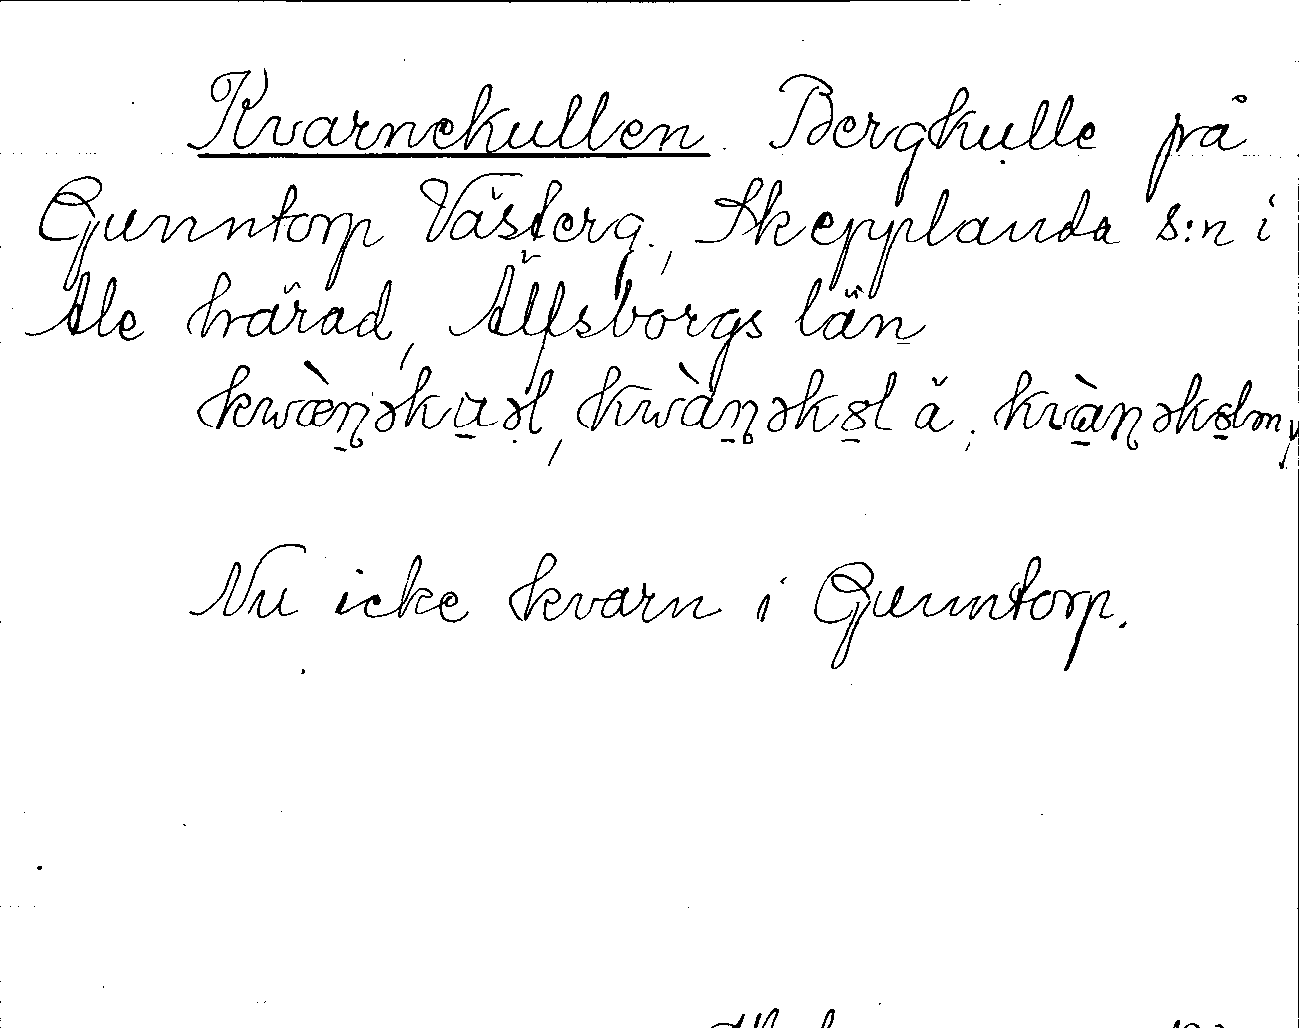 Kvarnekullen. Bergkulle på
Gunntorp Västerg., Skepplanda s:n i
Ale härad, Älfsborgs län
kwæ̀ɳəkuəl, kwàɳəksl ă, kvàɳəkslm,
Nu icke kvarn i Gunntorp.